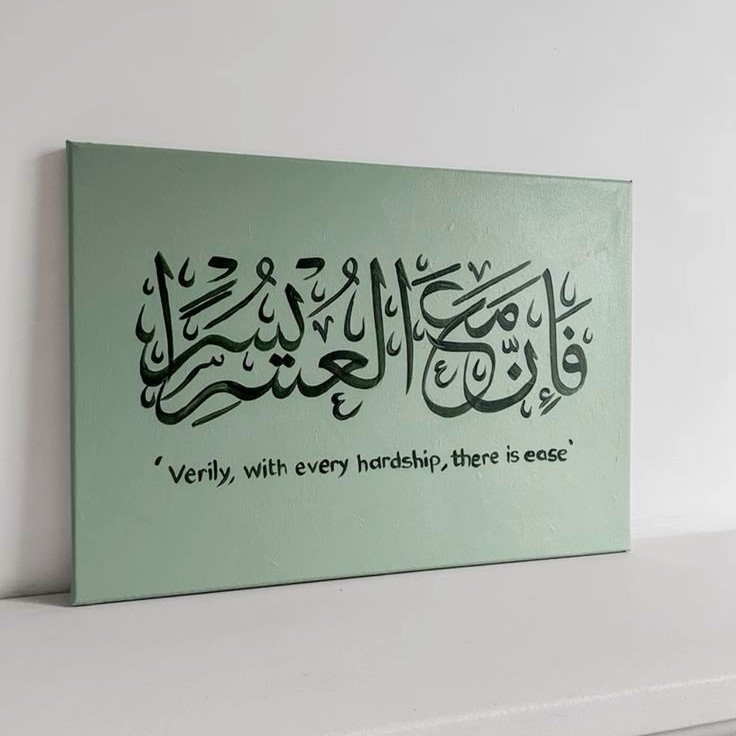 فَإِنَّ مَعَ الْعُسْرِ يُسْرًا
‘Verily, with every hardship, there is ease’